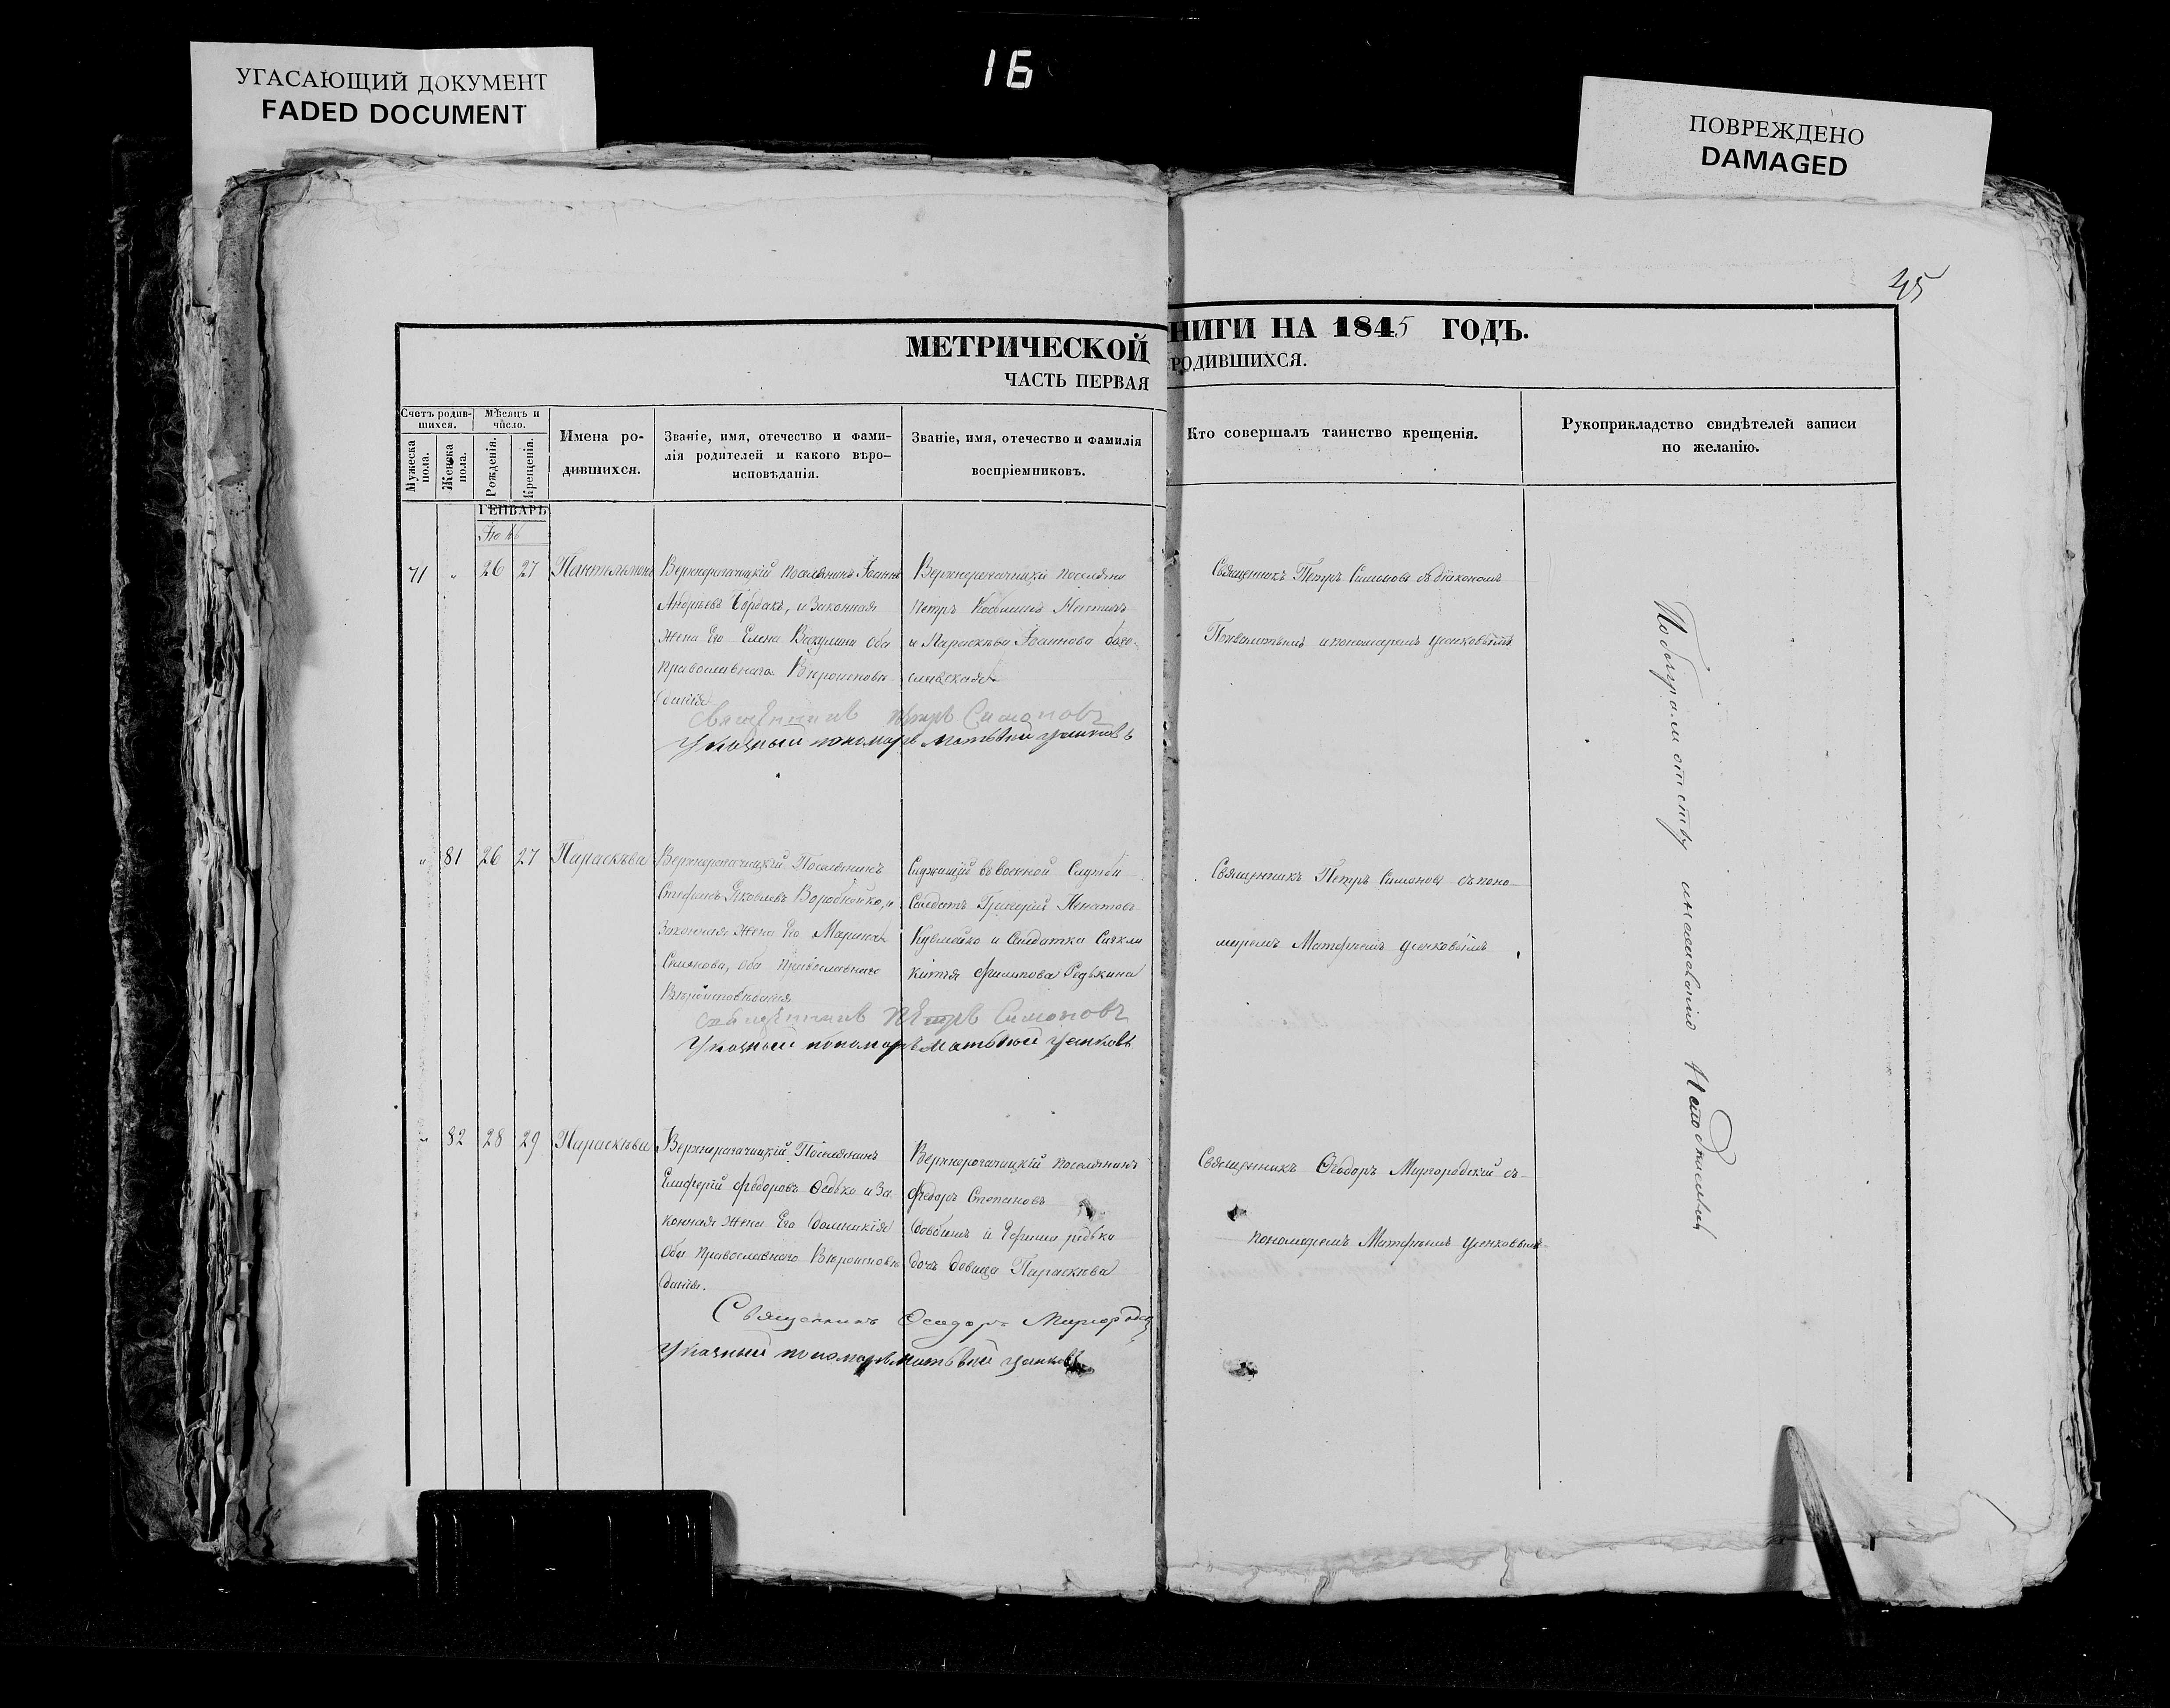 УГАСАЮЩИЙ ДОКУМЕНТ
FADED DOCUMENT
16
ПОВРЕЖДЕНО
DAMAGED
45
МЕТРИЧЕСКОЙ
НИГИ НА 1845 ГОДЪ.
ЧАСТЬ ПЕРВАЯ
РОДИВШИХСЯ.
Счетъ родив-
шихся.
Мужеска
пола.
Женска
пола.
Мѣсяцъ и
число.
Рожденія.
Крещенія.
Имена ро-
дившихся.
Званіе, имя, отечество и фами-
лія родителей и какого вѣро-
исповѣданія.
Званіе, имя, отечество и фамилія
воспріемниковъ.
Кто совершалъ таинство крещенія.
Рукоприкладство свидѣтелей записи
по желанію.
ГЕНВАРЬ
71 " 26 27 Пантелимонъ
Верхнерогачицкій поселянинъ Іоаннъ
Андреевъ, и законная
жена Его Елена Вакулина оба
православнаго Вѣроисповѣ
данія
Верхнерогачицкій
Петръ
и Параскѣва Іоаннова
Священникъ Петръ Симоновъ съ діакономъ
и пономаремъ Уценковымъ
Священникъ Петръ Симоновъ
Указный пономарь Матвѣй Уценковъ
" 81 26 27 Параскѣва
Верхнерогачицкій Поселянинъ
Стефанъ Яковлевъ Воробіойко, и
Законная Жена Его Марина
Семенова, оба Православнаго
Вѣроисповѣданія
Служащій въ военной Службѣ
Солдатъ Григорій
и Солдатка
Филипова Редькина
Священникъ Петръ Симоновъ съ поно-
маремъ Матфеемъ Уценковымъ
Священникъ Петръ Симоновъ
Указный пономарь Матвѣй Уценковъ
" 82 28 29 Параскѣва
Верхнерогачицкій Поселянинъ
Елиферій Федоровъ Редько и За-
конная Жена Его Домникія
Оба Православнаго Вѣроисповѣ
данія.
Верхнерогачицкій поселянинъ
Федоръ Степановъ
Довбышъ и редьки
дочь девица Параскѣва
Священникъ Феодоръ Миргородскій съ
пономаремъ Матфеемъ Уценковымъ
Священникъ Феодоръ Миргородскій
Указный пономарь Матвѣй Уценковъ
По безграмотству и нежеланію Неподписались